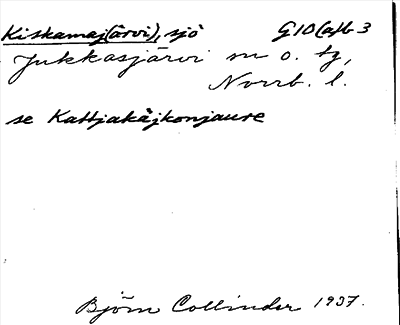 Kiskamaj(ärvi), sjö G10(a)b3
Jukkasjärvi sn o. tg,
Norrb. l.
se Kattjakåjkonjaure
Björn Collinder 1937.